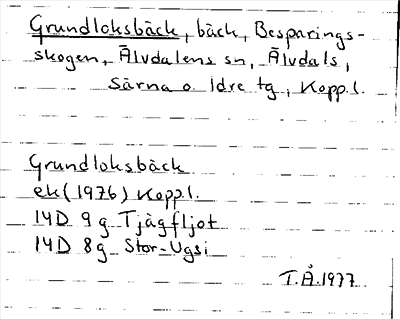 Grundloksbäck, bäck, Besparings-
skogen, Älvdalens sn, Älvdals,
Särna o. Idre tg, Kopp.l.
Grundloksbäck
ek (1976) Kopp.l.
14D 9g Tjägfljot
14D 8g Stor-Ugsi
T.Å.1977